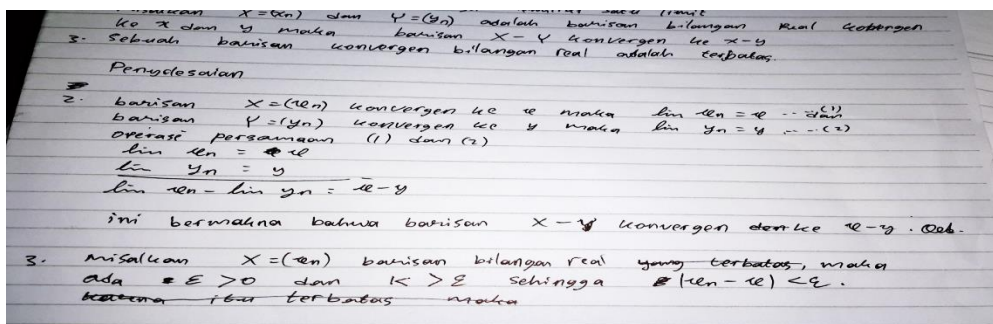 X = (xn) dan Y = (yn) adalah barisan bilangan Real kobergen
ke x dan y maka barisan X - Y konvergen ke x-y
3. Sebuah barisan konvergen bilangan real adalah terbatas.
Penyelesaian
2. barisan X = (xn) konvergen ke x maka lim xn = x ... (1) dan
barisan Y = (yn) konvergen ke y maka lim yn = y ... (2)
Operasi persamaan (1) dan (2)
lim xn = x
lim yn = y
lim xn - lim yn = x-y
ini bermakna bahwa barisan X - Y konvergen ke x-y. Qed.
3. Misalkan X = (xn) barisan bilangan real yang terbatas, maka
ada ε > 0 dan K > ε sehingga |xn - x| < ε.
karena itu terbatas maka